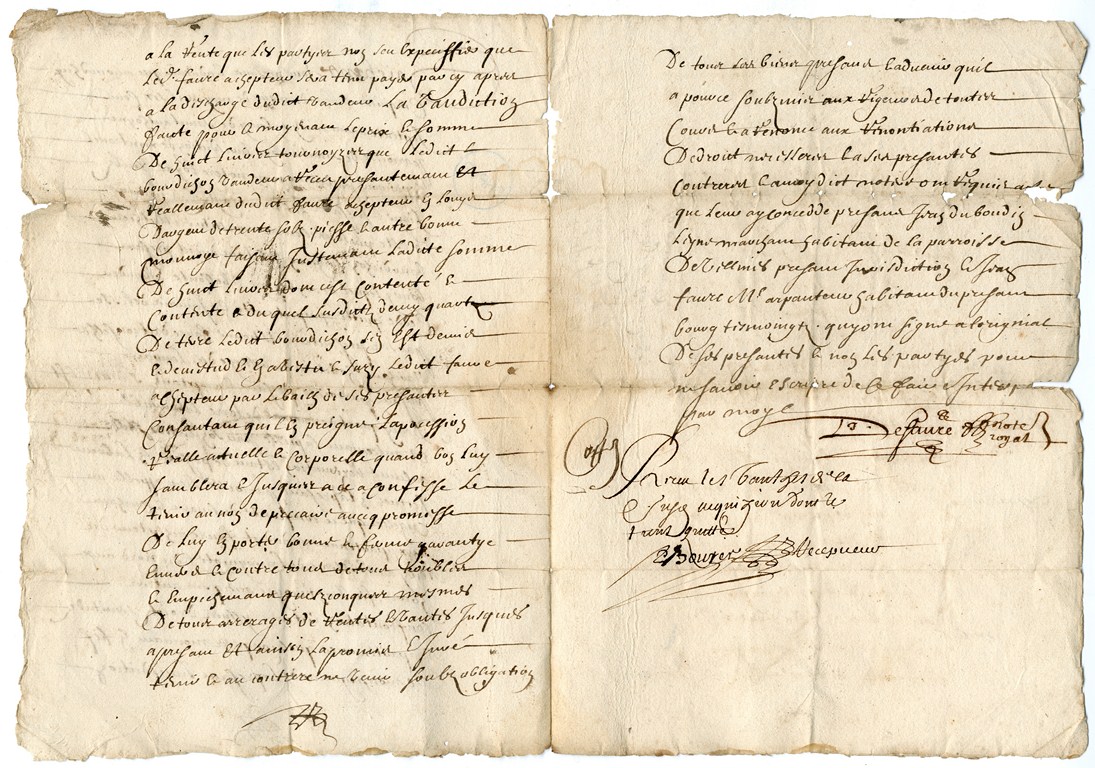 a la Vente que les partyes nos seu expeciffie que
Led. faure achepteur sera tenu payer par cy apres
a la discharge dudict Vandeur La Vandiction
faite pour le moyenant le prix le somme
De huict Livres tournoyzes que Ledict
bourdichon Vandeur a Receu presantemant et
Reallemant dudict faure achepteur En Louys
Dargent de trente solz piesse & autre bonne
monnoye faisant Justemant Ladite somme
De huict Livres dom cest contenté &
Contente & duquel susdict demy quart
De terre Ledit bourdichon sen Est demis
& devestu & En a vestu & saizy Ledit faure
achepteur par Lebail de ses presantes
Consantant quil En preigne La pocession
realle actuelle & Corporelle quand bon Luy
samblera & Jusques a ce a confesse Le
tenir au nom de precaire avecq promesse
De Luy En porter bonne & ferme garantye
Envers & contre tous de tous troubles
& Empichemans quelzconques mesmes
De tous arrerages de Rentes & Vantes Jusques
apresant Et ainsin La promis & Juré
tenir & au contrere ne Venir soubz obligation
De tous ses biens presans & advenir quil
a pour ce soubzmis aux Rigeurs de toutes
Cours & a Renoncé aux Renontiations
De droit necesseres & a ses presantes
Contreres & a moydict notere om Requis acte
que Leur ay concedde presans Jean du boudin
Ligne marchant habitant de la parroisse
De Vellines presant Jurisdiction & Jean
faure Me arpanteur habitant du presant
bourg tesmoingtz quy ont signe a Lorignial
De ses presantes & non Les partyes pour
ne sauoir escripre de ce faire Interp
par moy
Defaure notere royal
Receu les Vantes de la
susd acquizition dont
tient quitte
Bouyer Recepueur